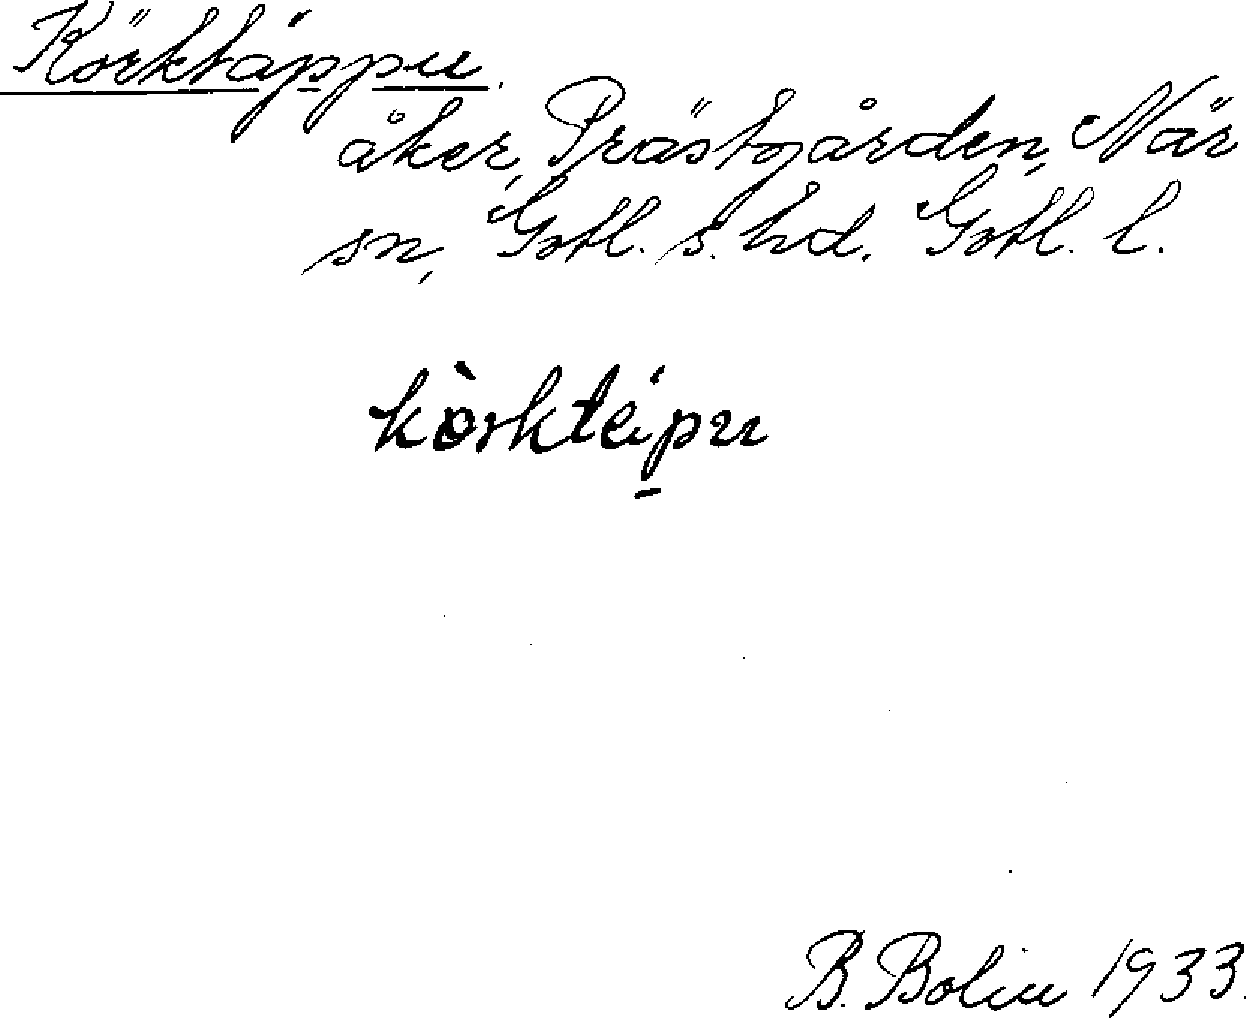 Körktäppu.
åker, Prästgården, När
sn, Gotl. s. hd. Gotl. l.
kòrktépu
B. Bolin 1933.